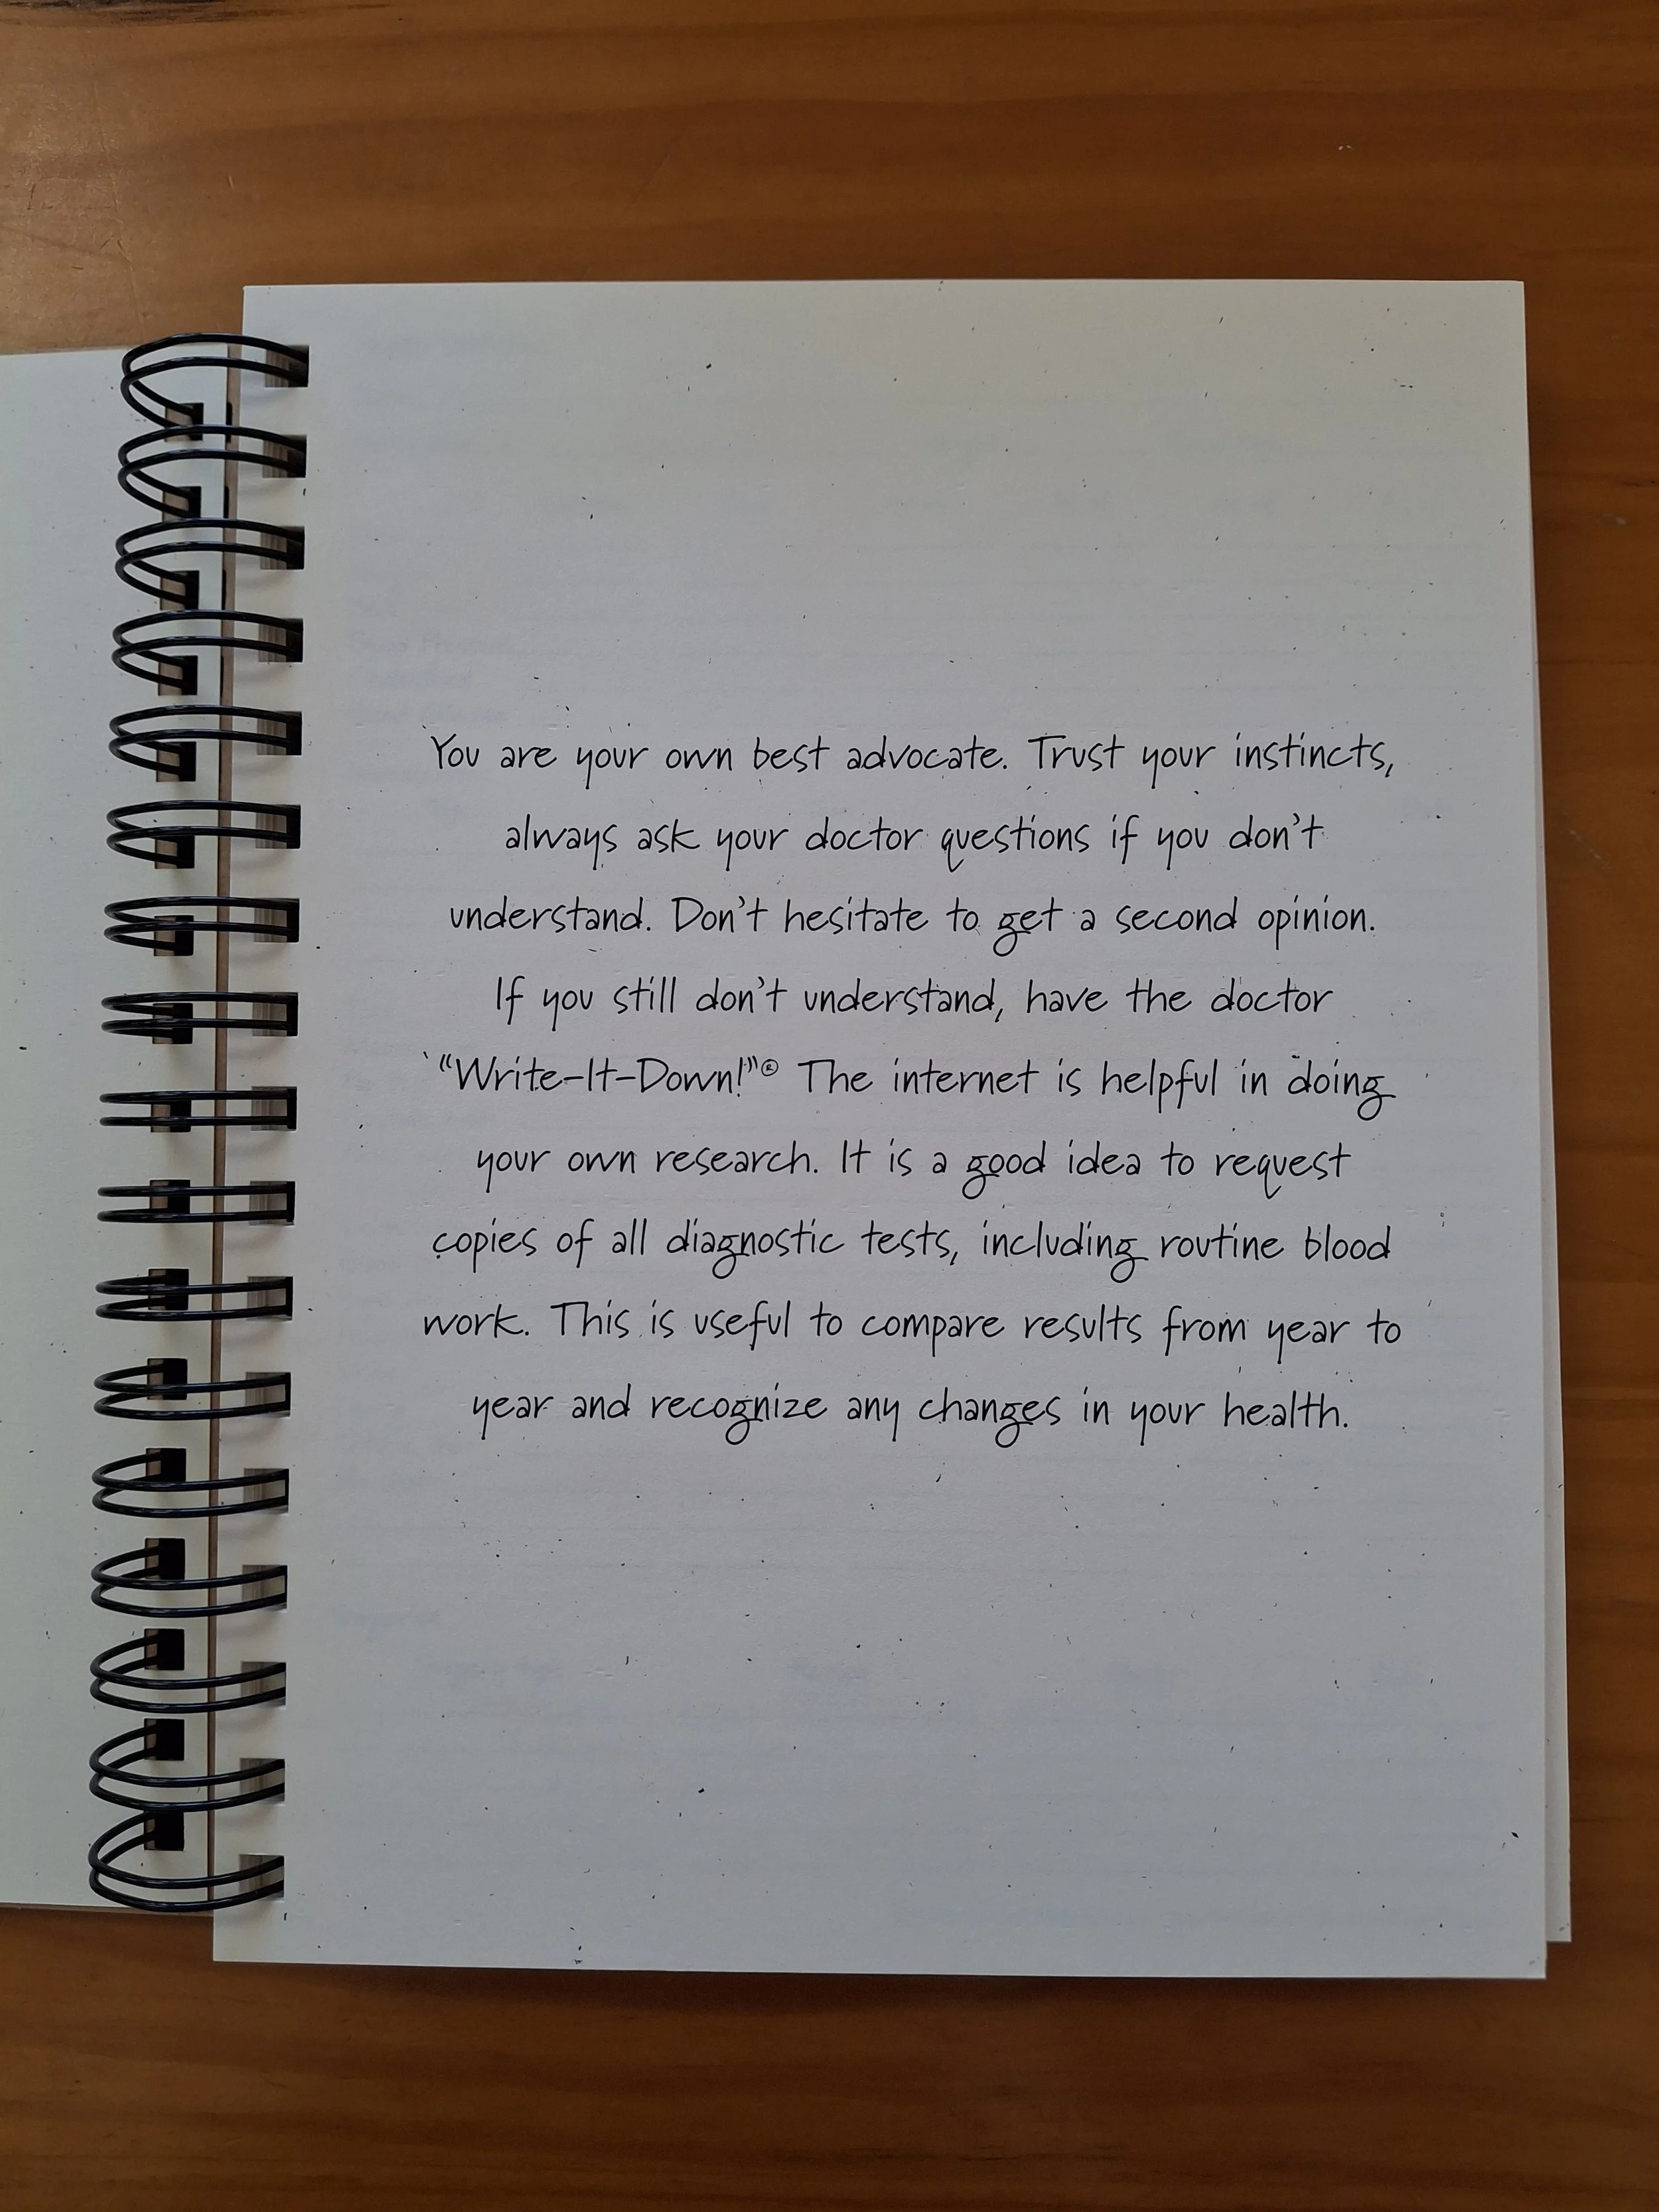 You are your own best advocate. Trust your instincts,
always ask your doctor questions if you don't
understand. Don't hesitate to get a second opinion.
If you still don't understand, have the doctor
“Write-It-Down!”® The internet is helpful in doing
your own research. It is a good idea to request
copies of all diagnostic tests, including routine blood
work. This is useful to compare results from year to
year and recognize any changes in your health.